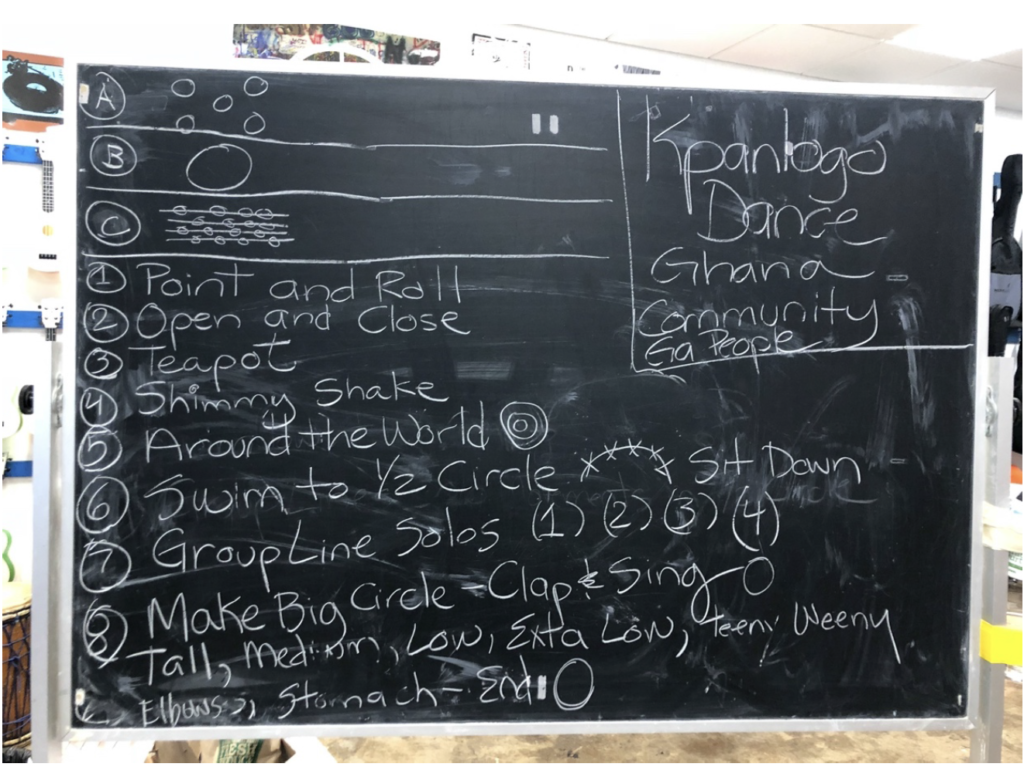 A
B
C
Kpanlogo
Dance
Ghana
Community
Ga People
1 Point and Roll
2 Open and Close
3 Teapot
4 Shimmy Shake
5 Around the World
6 Swim to 1/2 Circle Sit Down
7 Group Line Solos (1) (2) (3) (4)
8 Make Big Circle - Clap & Sing
Tall, Medium, Low, Exta Low, Teeny Weeny
Elbows, Stomach - End